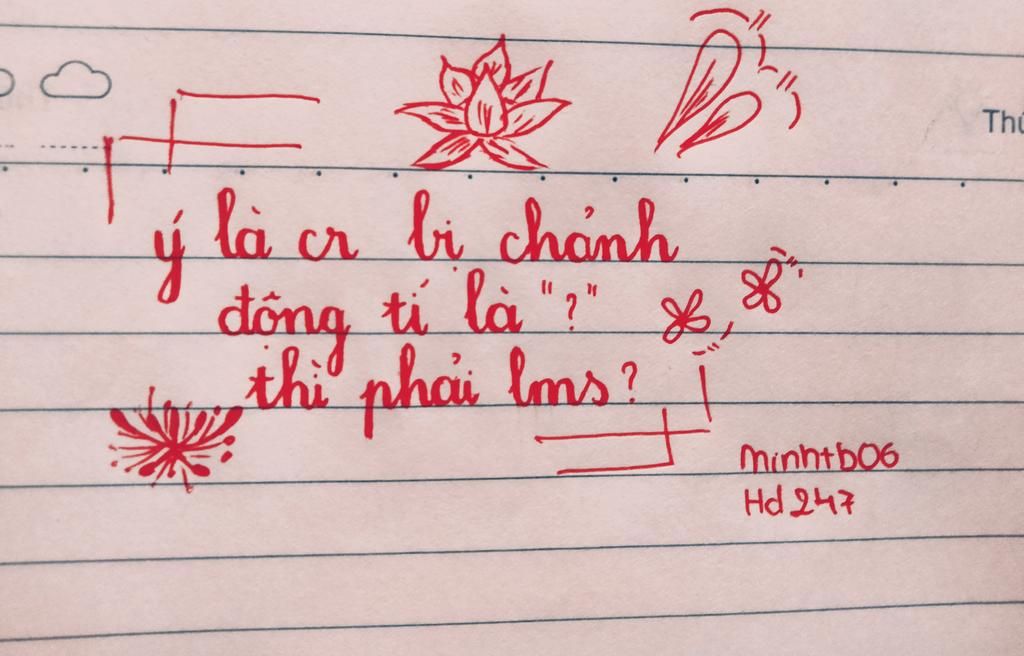 Thứ
ý là cr bị chảnh
động tí là "?"
thì phải lms?
Minhtb06
Hd247